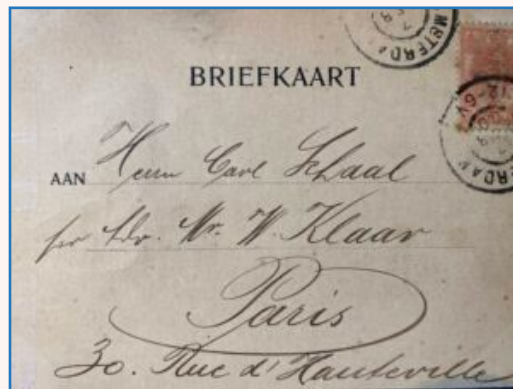 AMSTERDAM
BRIEFKAART
12-6V
AAN Herrn Carl Schaal
per Adr. Mr. W. Klaar
Paris
30. Rue d'Hauteville